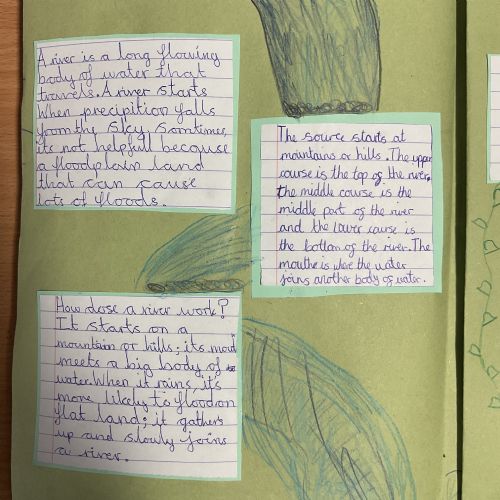 A river is a long flowing
body of water that
travels. A river starts
when precipition falls
from the sky, somtimes,
its not helpfull because
a floodplain land
that can cause
lots of floods.
The source starts at
mountains or hills. The upper
course is the top of the river.
the middle course is the
middle part of the river
and the lower course is
the bottom of the river. The
mouthe is where the water
joins another body of water.
How dose a river work?
It starts on a
mountain or hills; its mout
meets a big body of
water. When it rains, it's
more likely to flood on
flat land; it gathers
up and slowly joins
a river.